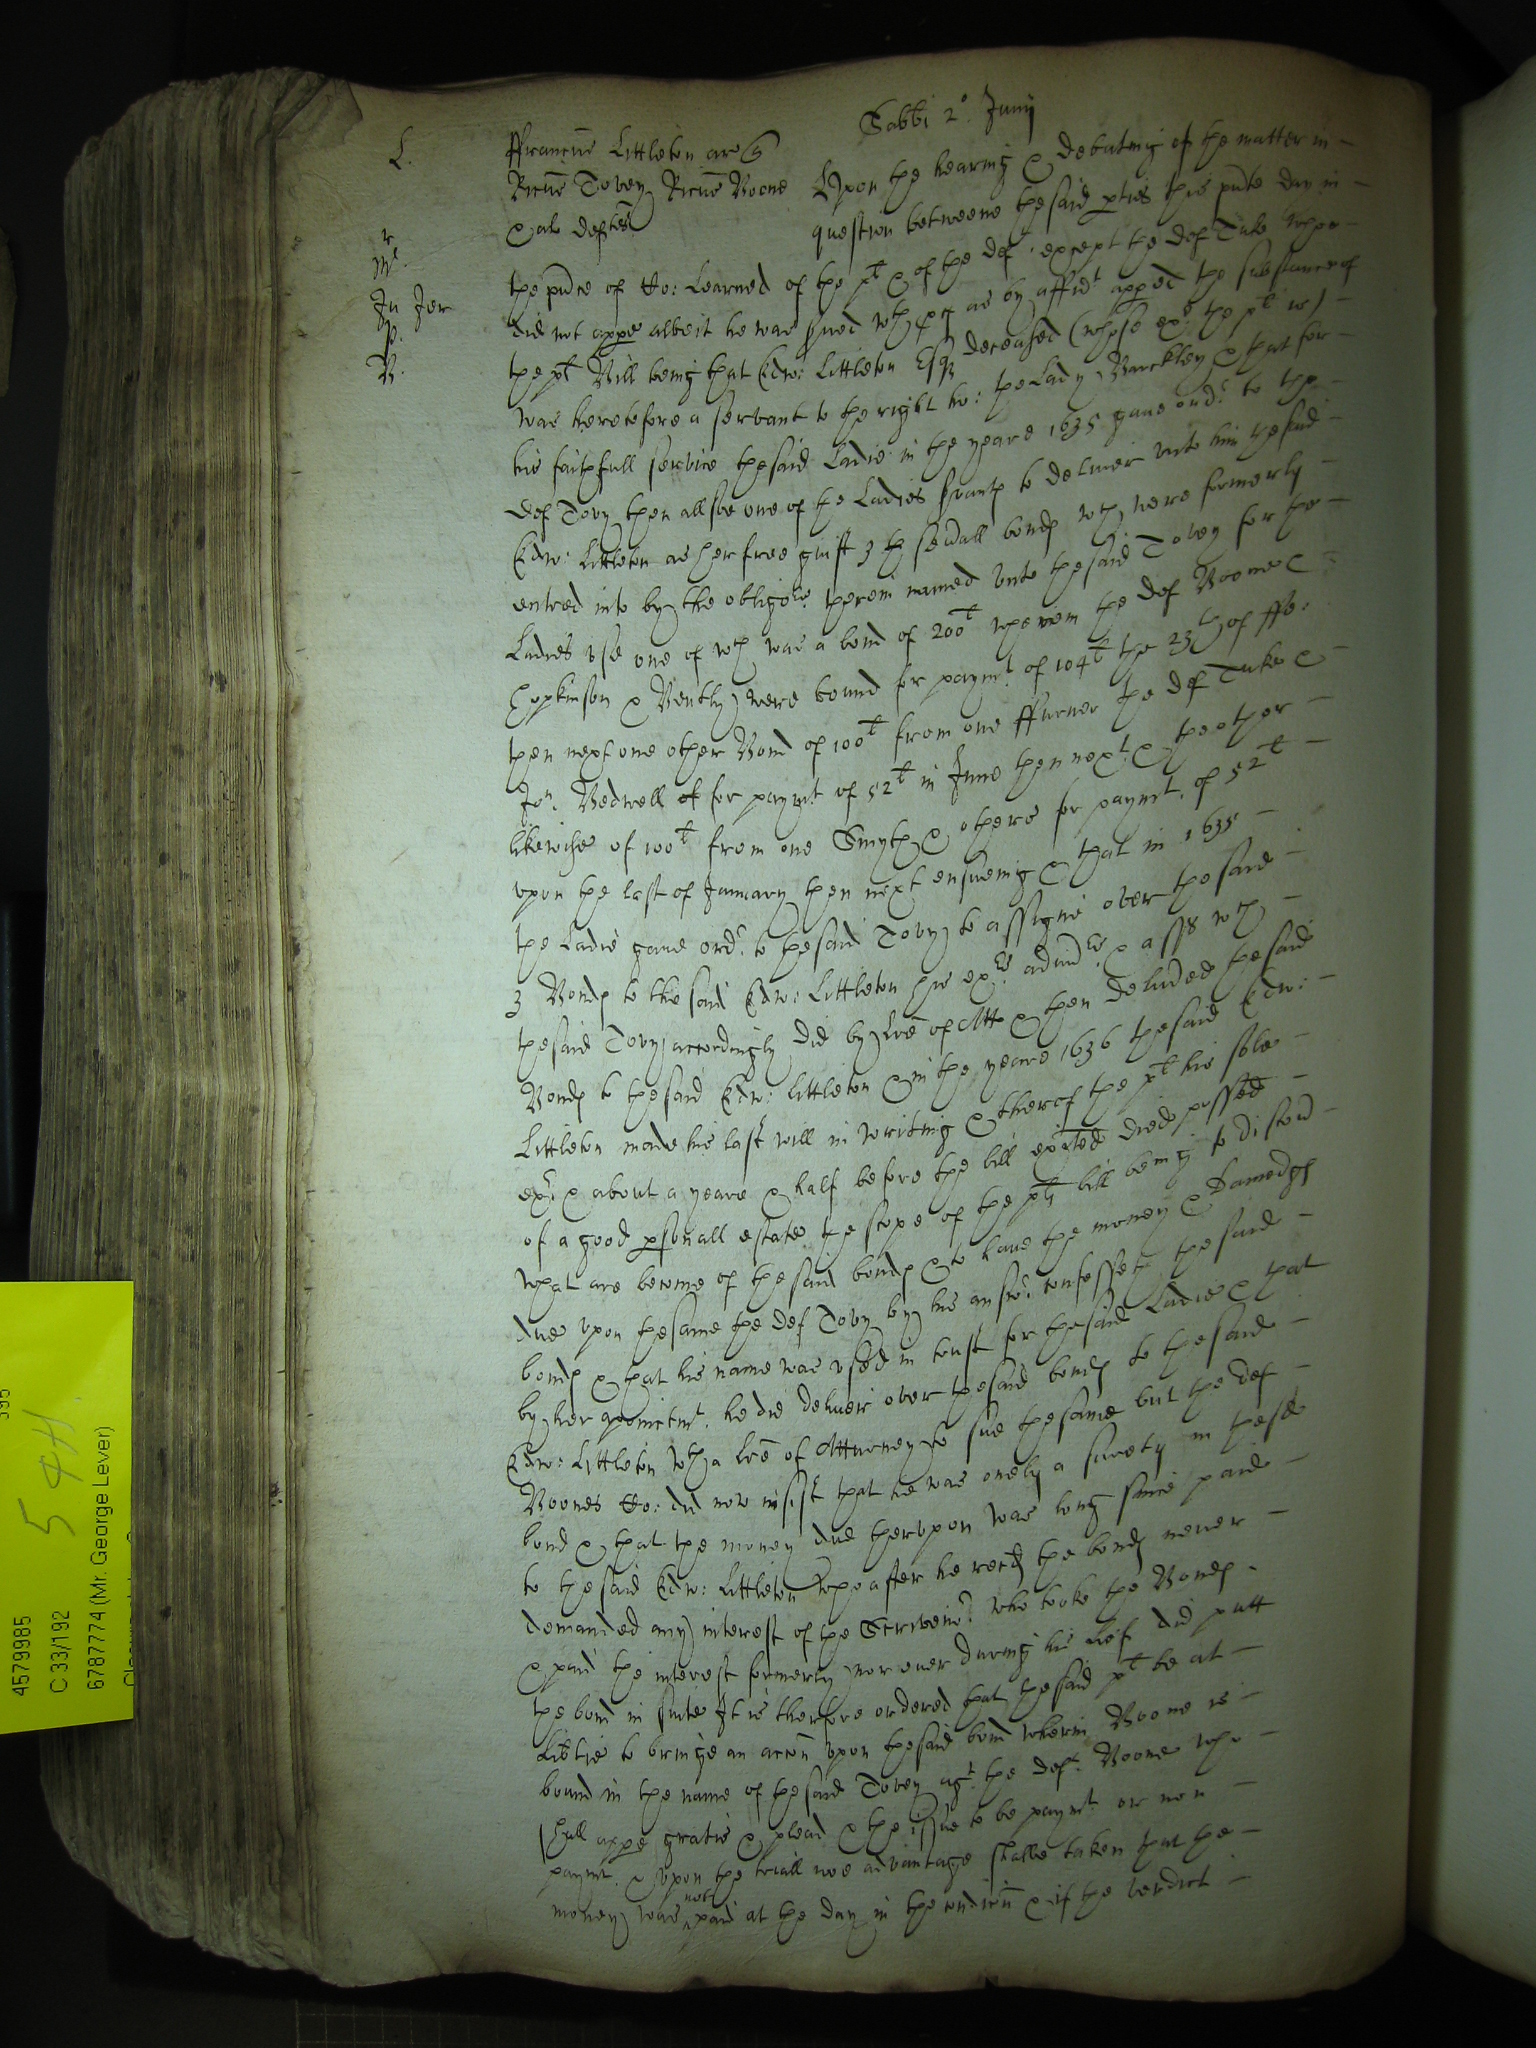 Sabbi 2° Junij
L.
ffrancus Littleton ar q
Ricus Tovey Ricus Boone
& al deftes
r
Mr.
Ju Jer
p.
B.
Upon the hearing & debating of the matter in
question betweene the said pties this pnte day in
the pnce of Co: Learned of the plt & of the def except the def Take who
did not appe albeit he was served wth as by affidt apped the substance of
the plt Bill being that Edw: Littleton Esqr deceased (whose exr the plt is)
was heretofore a servant to the right ho: the Lady Barckley & that for
his faithfull service the said Ladie in the yeare 1635 gave ordr to the
def Tovy then allsoe one of the Ladies srvants to deliver unto him the said
Edw: Littleton as her free guift 3 sevall bonds wch were formerly
entred into by the obligors therein named unto the said Tovey for the
Ladies use one of wch was a bond of 200l wherein the def Boone
Hopkinson & Bently were bound for paymt of 104l the 23th of ffe:
then next one other Bond of 100l from one ffurner the def Take &
Jon. Bedwell for paymt of 52l in June then next & the other
likewise of 100l from one Smyth & others for paymt. of 52l
upon the last of January then next ensueing & that in 1635
the Ladie gave ordr. to the said Tovy to assigne over the said
3 Bonds to the said Edw: Littleton his exrs admrs & asss wch
the said Tovy accordingly did by Lre of Att & then delivered the said
Bonds to the said Edw: Littleton & in the yeare 1636 the said Edw:
Littleton made his last will in writing & therof the plt his sole
exr. & about a yeare & half before the bill exted died possed
of a good psonall estate the scope of the plts bill being to discovr
what are become of the said bonds & to have the money & damedgs
due upon the same the def Tovy by his answr. confesseth the said
bonds & that his name was used in trust for the said Ladie & that
by her apointmt. he did deliver over the said bonds to the said
Edw: Littleton wth a Lre of Atturney to sue the same but the def
Boones Co: did now insist that he was onely a surety in these
bond & that the money due therupon was long since paid
to the said Edw: Littleton who after he recd the bonds never
demanded any interest of the Scrivenr. who tooke the Bonds
& paid the interest formerly nor ever during his lief did putt
the bond in suite It is therfore ordered that the said plt be at
Libtie to bringe an accon upon the said bond wherin Boone is
bound in the name of the said Tovey agt. the deft. Boone who
shall appe gratis & plead & the issue to be paymt. or non
paymt. & upon the triall noe advantage shalbe taken that the
money was not paid at the day in the condicon & if the verdict
4579985
C 33/192
6787774 (Mr. George Lever)